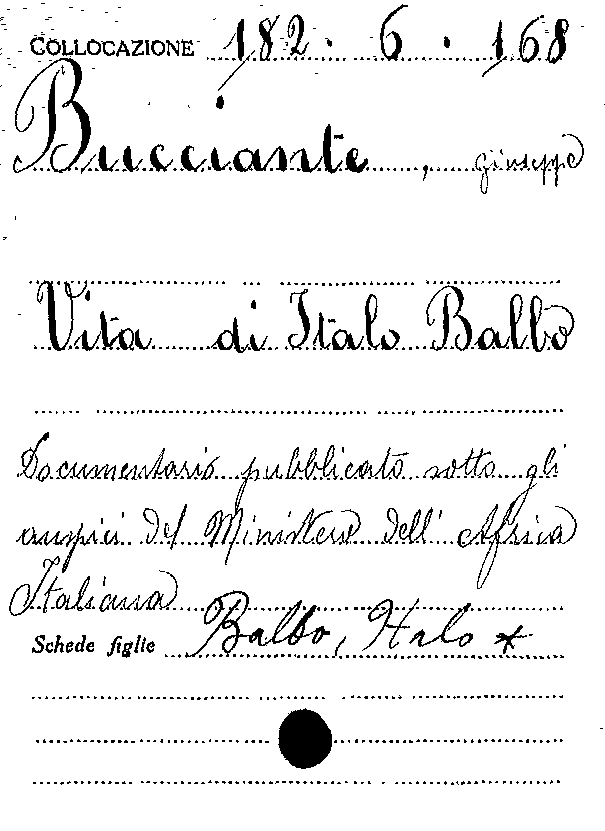 COLLOCAZIONE 182. 6. 168
Bucciante, Giuseppe
Vita di Italo Balbo
Documentario pubblicato sotto gli
auspici del Ministero dell' Africa
Italiana
Schede figlie Balbo, Italo *